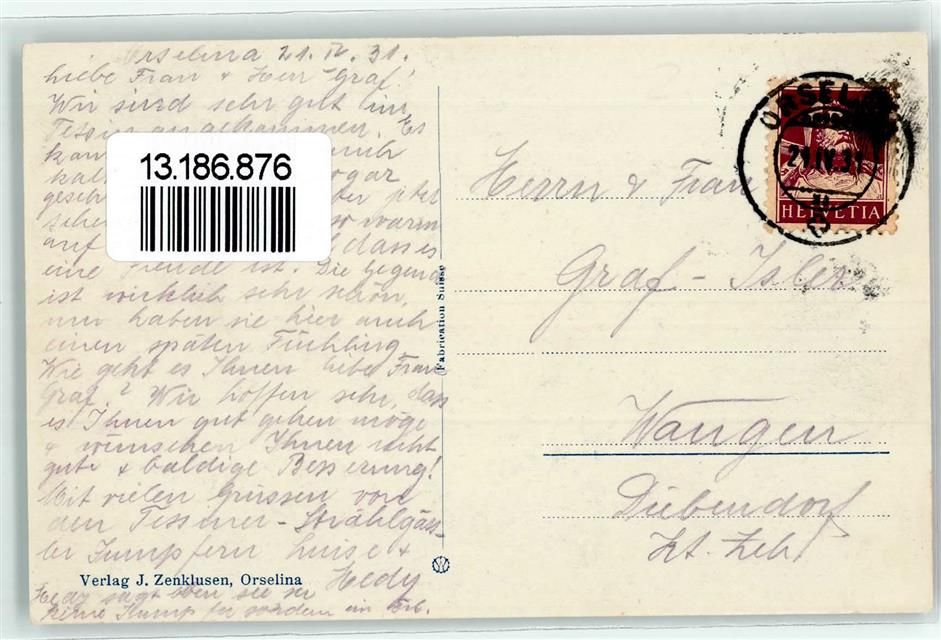 Orselina 21. IV. 31.
Liebe Frau & Herr Graf!
Wir sind sehr gut im
Tessin angekommen. Es
13.186.876
so warm
auf dass es
eine Freude ist. Die Gegend
ist wirklich sehr schön,
nur haben sie hier auch
einen späten Frühling
Wie geht es Ihnen liebe Frau
Graf? Wir hoffen sehr, dass
es Ihnen gut gehen möge
& wünschen Ihnen recht
gute & baldige Besserung!
Mit vielen Grüssen von
den Tessiner-Strählgäss-
ler Jumpfern Luise &
Hedy
Verlag J. Zenklusen, Orselina
Hedy sagt eben sie sei
keine Jumpfer sondern ein Frl.
(Fabrication Suisse)
ORSEL
21.IV.31
HELVETIA
Herrn & Frau
Graf-Isler
Wangen
Dübendorf
Kt. Zch.